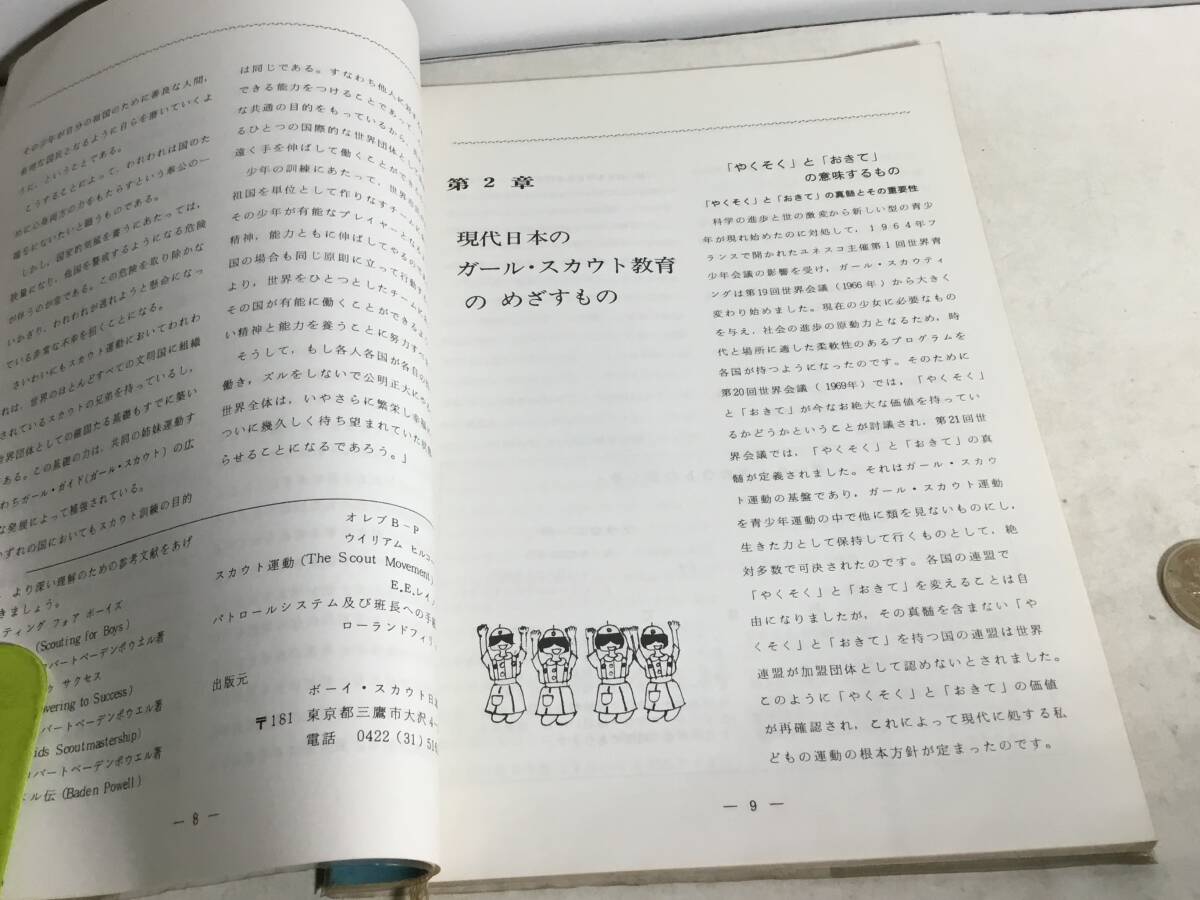 その少年が自分の祖国のために善良な人間,
有用な国民となるように自らを磨いていくよ
うに, ということである。
こうすることによって, われわれは国のた
めに心身両方の力をもたらすという奉公の一
端をになないたいと願うものである。
しかし, 国家的気風を養うにあたっては,
狭量になり, 他国を警戒するようになる危険
が伴うのが常である。この危険を取り除かな
いかぎり, われわれが逃れようと懸命になっ
ている非常な不幸を招くことになる。
さいわいにもスカウト運動においてわれわ
れは, 世界のほとんどすべての文明国に組織
されているスカウトの兄弟を持っているし,
世界団体としての確固たる基礎もすでに築い
ある。この基礎の力は, 共同の姉妹運動す
わちガール・ガイド(ガール・スカウト) の広
な発展によって補強されている。
ずれの国においてもスカウト訓練の目的
は同じである。すなわち他人に対す
できる能力をつけることであって
な共通の目的をもっているから,
るひとつの国際的な世界団体として
遠く手を伸ばして働くことができ
少年の訓練にあたって, 世界
祖国を単位として作りなすチーム
その少年が有能なプレイヤーとな
精神, 能力ともに伸ばしてやるの
国の場合も同じ原則に立って行動
より, 世界をひとつとしたチームに
その国が有能に働くことができるよ
い精神と能力を養うことに努力す
そうして, もし各人各国が各自の
働き, ズルをしないで公明正大に
世界全体は, いやさらに繁栄し幸
ついに幾久しく待ち望まれていた
らせることになるであろう。」
より深い理解のための参考文献をあげ
きましょう。
ティング フォア ボーイズ
(Scouting for Boys)
バートベーデンポウエル著
ウ サクセス
overing to Success)
バートベーデンポウエル著
ids Scoutmastership)
バートベーデンポウエル著
ル伝 (Baden Powell)
オレブB-P
ウイリアム ヒルコ
スカウト運動 (The Scout Movement)
E.E.レイ
パトロールシステム及び班長への手紙
ローランドフィリ
出版元
ボーイ・スカウト日
〒181 東京都三鷹市大沢4
電話 0422 (31) 516
— 8 —
第 2 章
現代日本の
ガール・スカウト教育
の めざすもの
「やくそく」と「おきて」
の意味するもの
「やくそく」と「おきて」の真髄とその重要性
科学の進歩と世の激変から新しい型の青少
年が現れ始めたのに対処して, 1964年フ
ランスで開かれたユネスコ主催第1回世界青
少年会議の影響を受け, ガール・スカウティ
ングは第19回世界会議 (1966年) から大きく
変わり始めました。現在の少女に必要なもの
を与え, 社会の進歩の原動力となるため, 時
代と場所に適した柔軟性のあるプログラムを
各国が持つようになったのです。そのために
第20回世界会議 (1969年) では, 「やくそく」
と「おきて」が今なお絶大な価値を持ってい
るかどうかということが討議され, 第21回世
界会議では, 「やくそく」と「おきて」の真
髄が定義されました。それはガール・スカウ
ト運動の基盤であり, ガール・スカウト運動
を青少年運動の中で他に類を見ないものにし,
生きた力として保持して行くものとして, 絶
対多数で可決されたのです。各国の連盟で
「やくそく」と「おきて」を変えることは自
由になりましたが, その真髄を含まない「や
くそく」と「おきて」を持つ国の連盟は世界
連盟が加盟団体として認めないとされました。
このように「やくそく」と「おきて」の価値
が再確認され, これによって現代に処する私
どもの運動の根本方針が定まったのです。
— 9 —